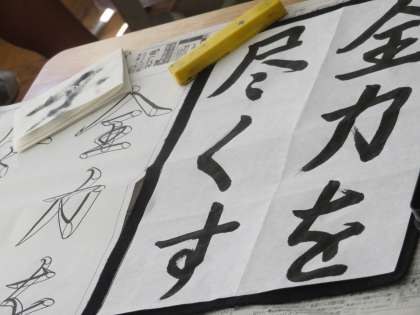 全力を
尽くす
全力を